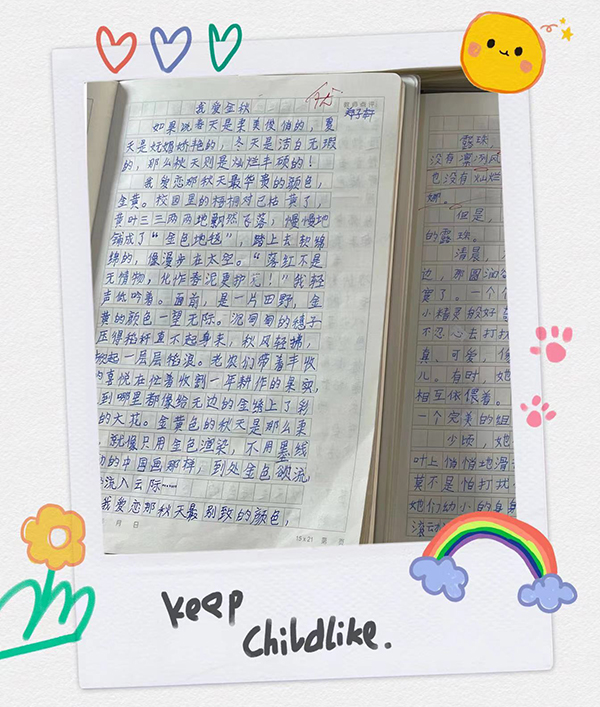 优
教师评语
我爱金秋
如果说春天是柔美俊俏的，夏
天是妩媚娇艳的，冬天是洁白无瑕
的，那么秋天则是灿烂丰硕的！
我爱恋那秋天最华贵的颜色，
金黄。校园里的梧桐树已枯黄了，
黄叶三三两两地飘然飞落，慢慢地
铺成了“金色地毯”，踏上去软绵
绵的，像漫步在太空。“落红不是
无情物，化作春泥更护花！”我轻
声低吟着。面前，是一片田野，金
黄的颜色一望无际。沉甸甸的穗子
压得稻秆直不起身来，秋风轻拂，
掀起一层层稻浪。老农们带着丰收
的喜悦在忙着收割一年耕作的果实，
到哪里都像给无边的金毯上了彩
的大花。金黄色的秋天是那么柔
，就像只用金色渲染，不用墨线
勾的中国画那样，到处金色欲流，
流入云际……
我爱恋那秋天最别致的颜色，
月 日
15×21 第 页
露珠
没有凛冽风
也没有灿烂
娜。
但是，
的露珠。
清晨，
边，那圆润
度了。一个
小精灵般好
不忍心去打扰
真、可爱，像
儿。有时，她
相互依偎着。
一个完美的组
少顷，她
叶上悄悄地滑
莫不是怕打扰
她们幼小的身
滚动
keep
Childlike.